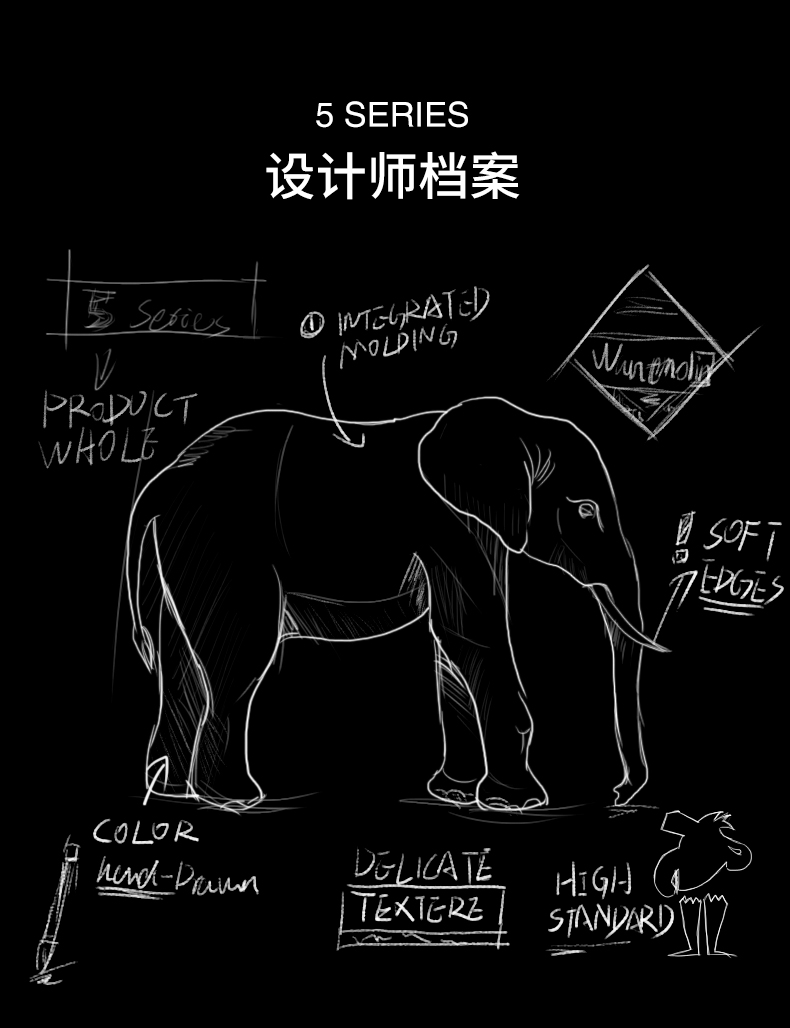 5 SERIES
设计师档案
5 Series
① INTEGRATED
MOLDING
PRODUCT
WHOLE
! SOFT
EDGES
COLOR
hand-Drawn
DELICATE
TEXTERE
HIGH
STANDARD